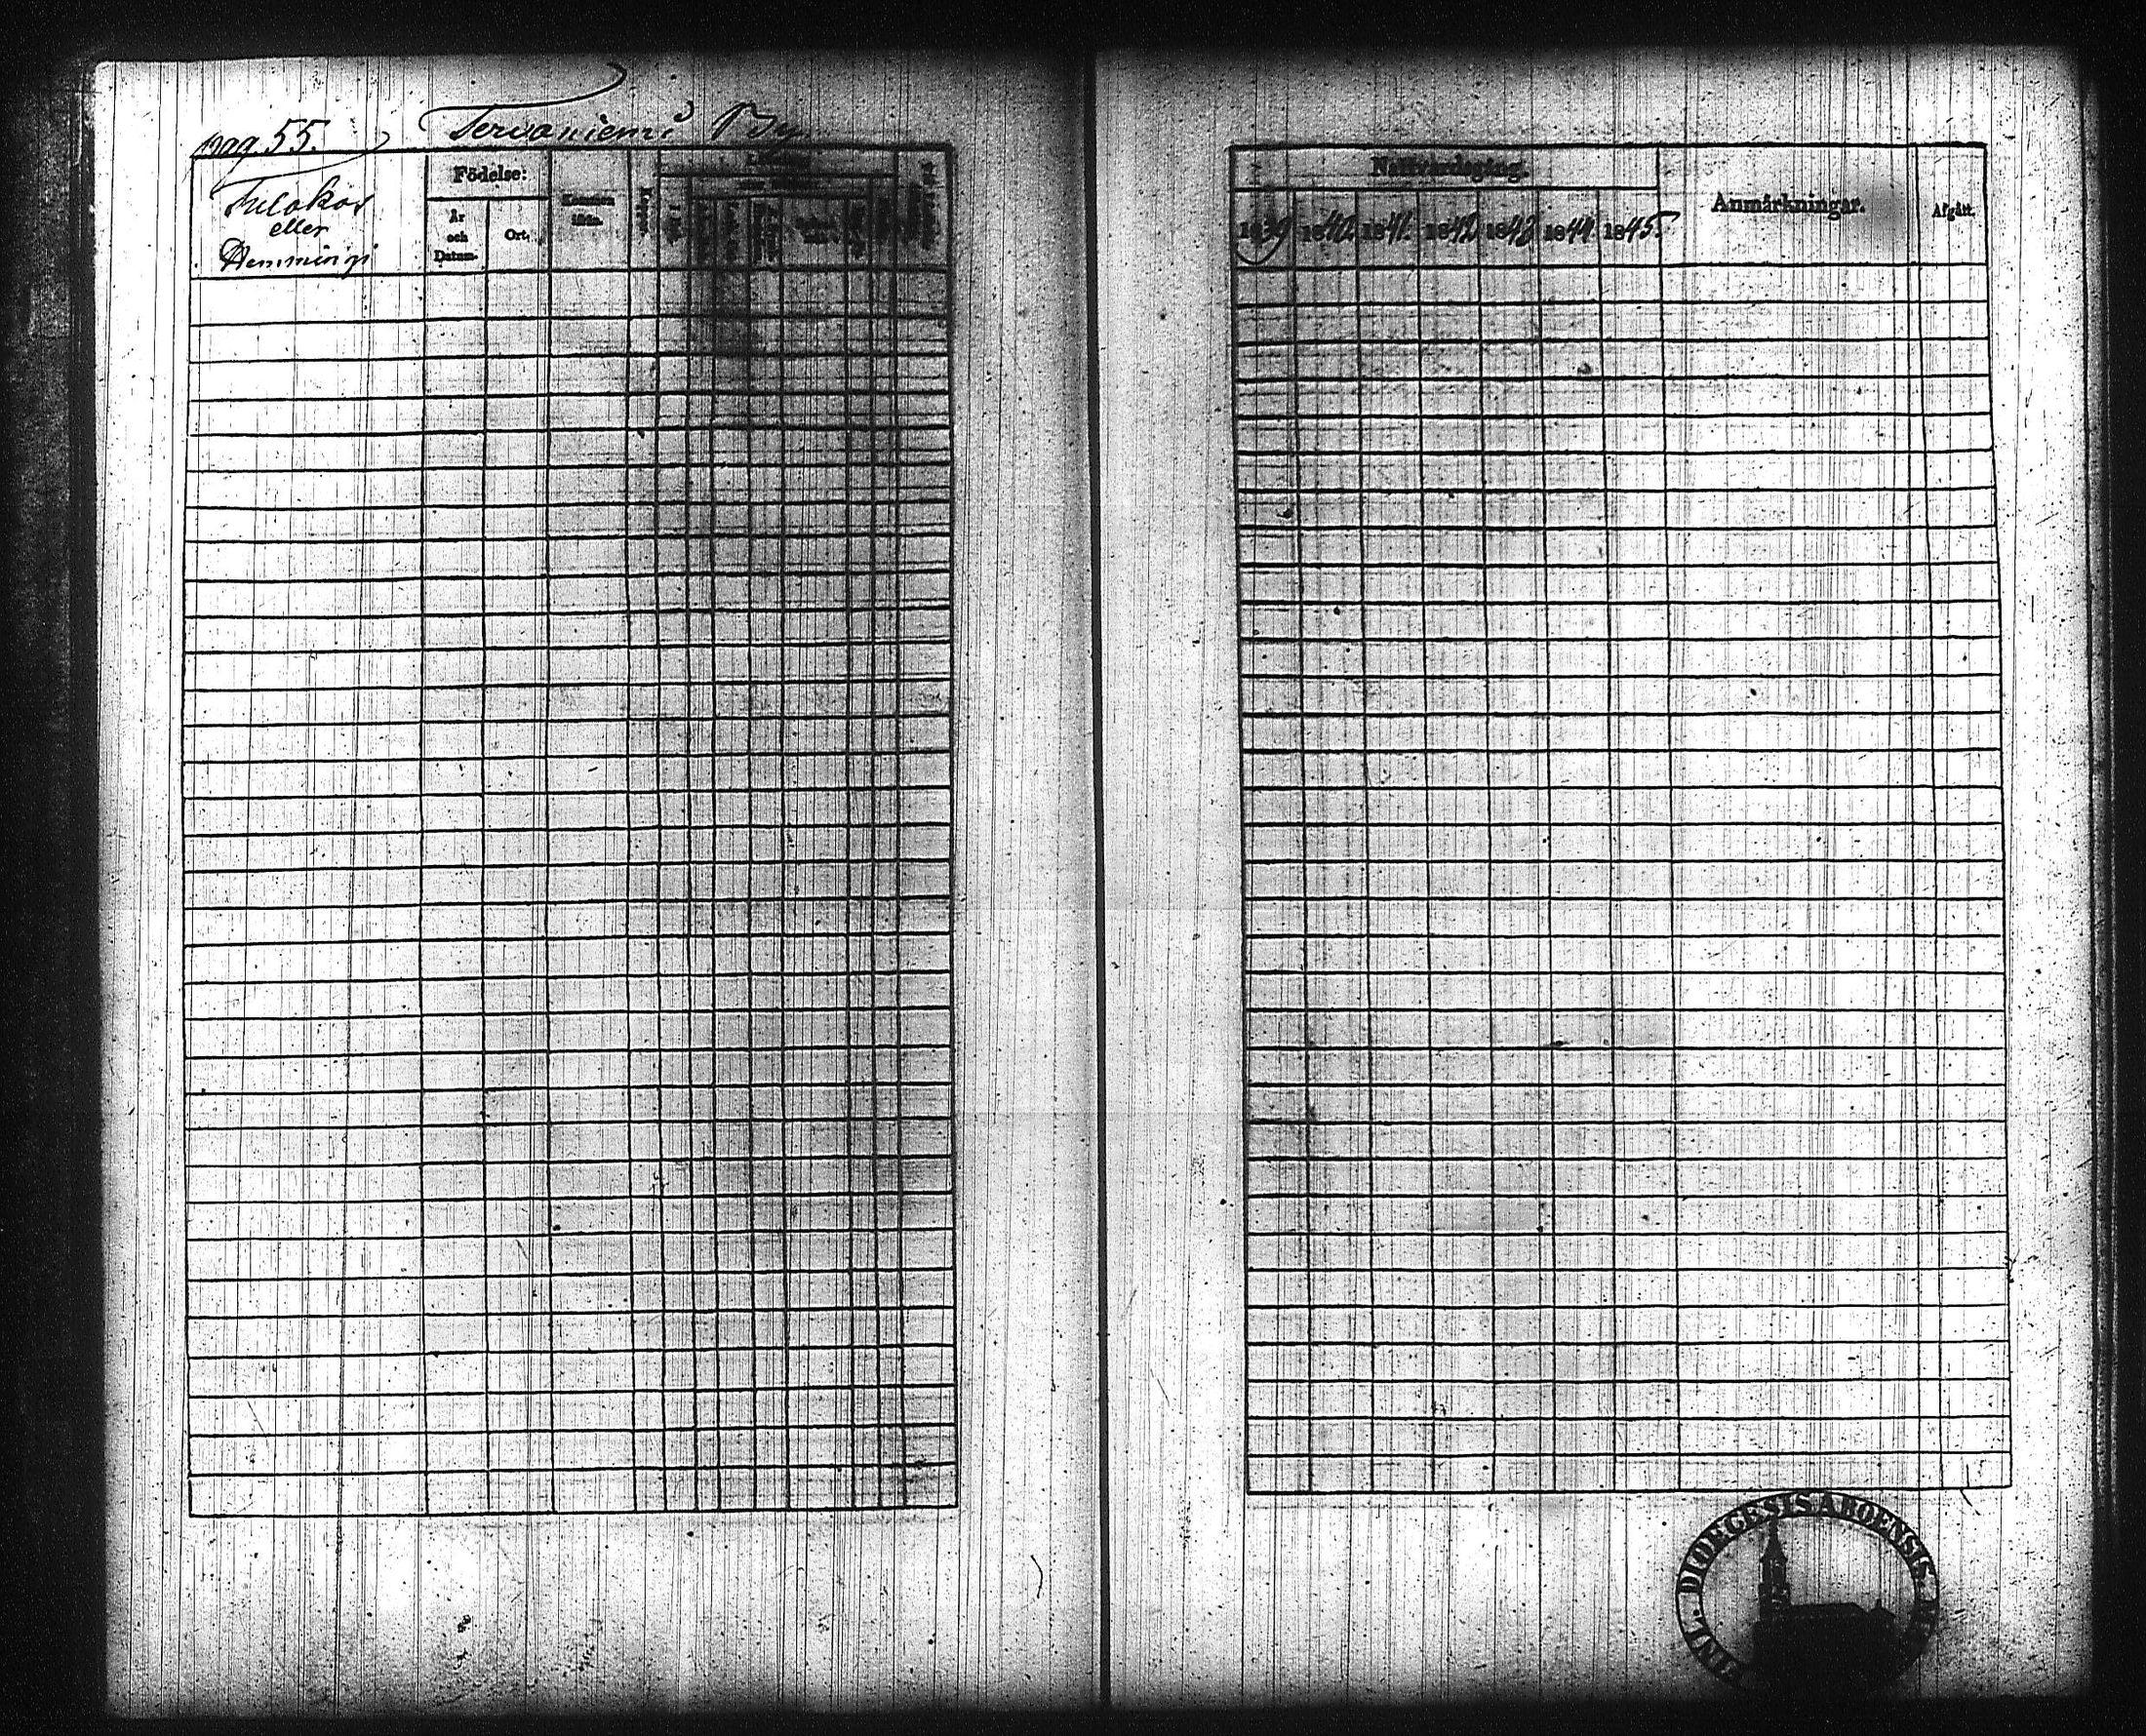 pag. 55. Tervaniemi By
Födelse:
Tulokas
eller
Hemmingi
År
och
Datum.
Ort.
Kommen
ifrån.
Koppor.
Nattvardsgång.
Anmärkningar.
Afgått.
1839 1840 1841. 1842 1843 1844 1845.
DIOECESIS ABOENSIS